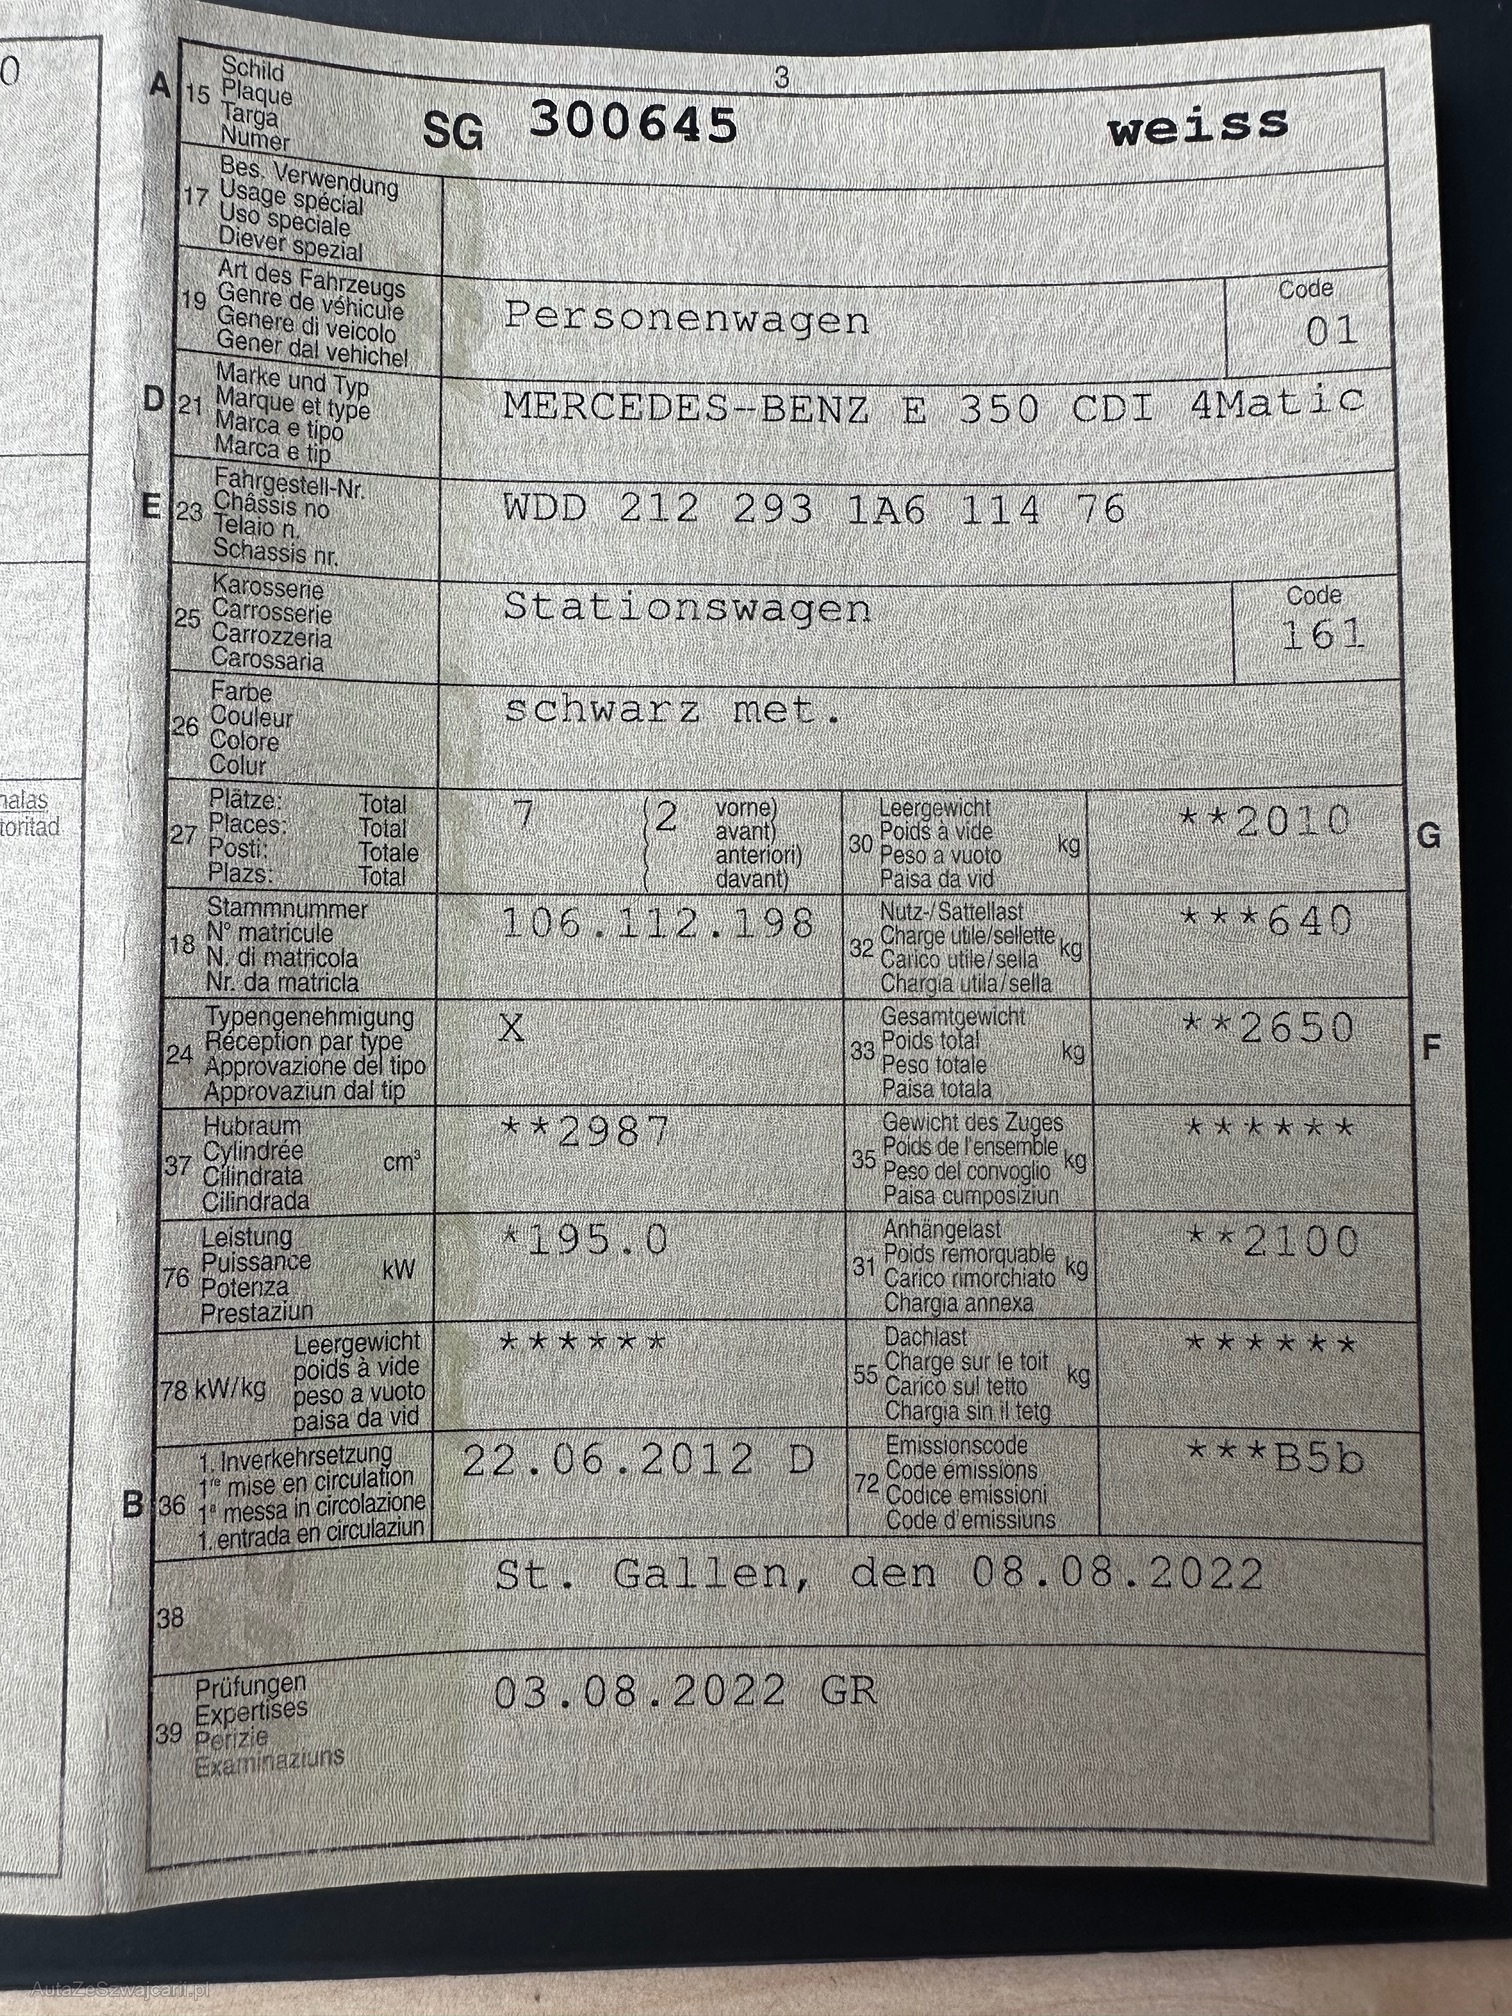 0
3
A 15 Schild
Plaque
Targa
Numer
SG 300645 weiss
17 Bes. Verwendung
Usage spécial
Uso speciale
Diever spezial
19 Art des Fahrzeugs
Genre de véhicule
Genere di veicolo
Gener dal vehichel
Personenwagen
Code
01
D 21 Marke und Typ
Marque et type
Marca e tipo
Marca e tip
MERCEDES-BENZ E 350 CDI 4Matic
E 23 Fahrgestell-Nr.
Châssis no
Telaio n.
Schassis nr.
WDD 212 293 1A6 114 76
25 Karosserie
Carrosserie
Carrozzeria
Carossaria
Stationswagen
Code
161
26 Farbe
Couleur
Colore
Colur
schwarz met.
27 Plätze: Total
Places: Total
Posti: Totale
Plazs: Total
7 (2 vorne)
( avant)
( anteriori)
( davant)
30 Leergewicht
Poids à vide
Peso a vuoto
Paisa da vid
kg
**2010
G
18 Stammnummer
N° matricule
N. di matricola
Nr. da matricla
106.112.198
32 Nutz-/Sattellast
Charge utile/sellette
Carico utile/sella
Chargia utila/sella
kg
***640
24 Typengenehmigung
Réception par type
Approvazione del tipo
Approvaziun dal tip
X
33 Gesamtgewicht
Poids total
Peso totale
Paisa totala
kg
**2650
F
37 Hubraum
Cylindrée
Cilindrata
Cilindrada
cm³
**2987
35 Gewicht des Zuges
Poids de l'ensemble
Peso del convoglio
Paisa cumposiziun
kg
******
76 Leistung
Puissance
Potenza
Prestaziun
kW
*195.0
31 Anhängelast
Poids remorquable
Carico rimorchiato
Chargia annexa
kg
**2100
78 kW/kg Leergewicht
poids à vide
peso a vuoto
paisa da vid
******
55 Dachlast
Charge sur le toit
Carico sul tetto
Chargia sin il tetg
kg
******
B 36 1. Inverkehrsetzung
1re mise en circulation
1a messa in circolazione
1. entrada en circulaziun
22.06.2012 D
72 Emissionscode
Code émissions
Codice emissioni
Code d'emissiuns
***B5b
38
St. Gallen, den 08.08.2022
39 Prüfungen
Expertises
Perizie
Examinaziuns
03.08.2022 GR
AutaZeSzwajcarii.pl